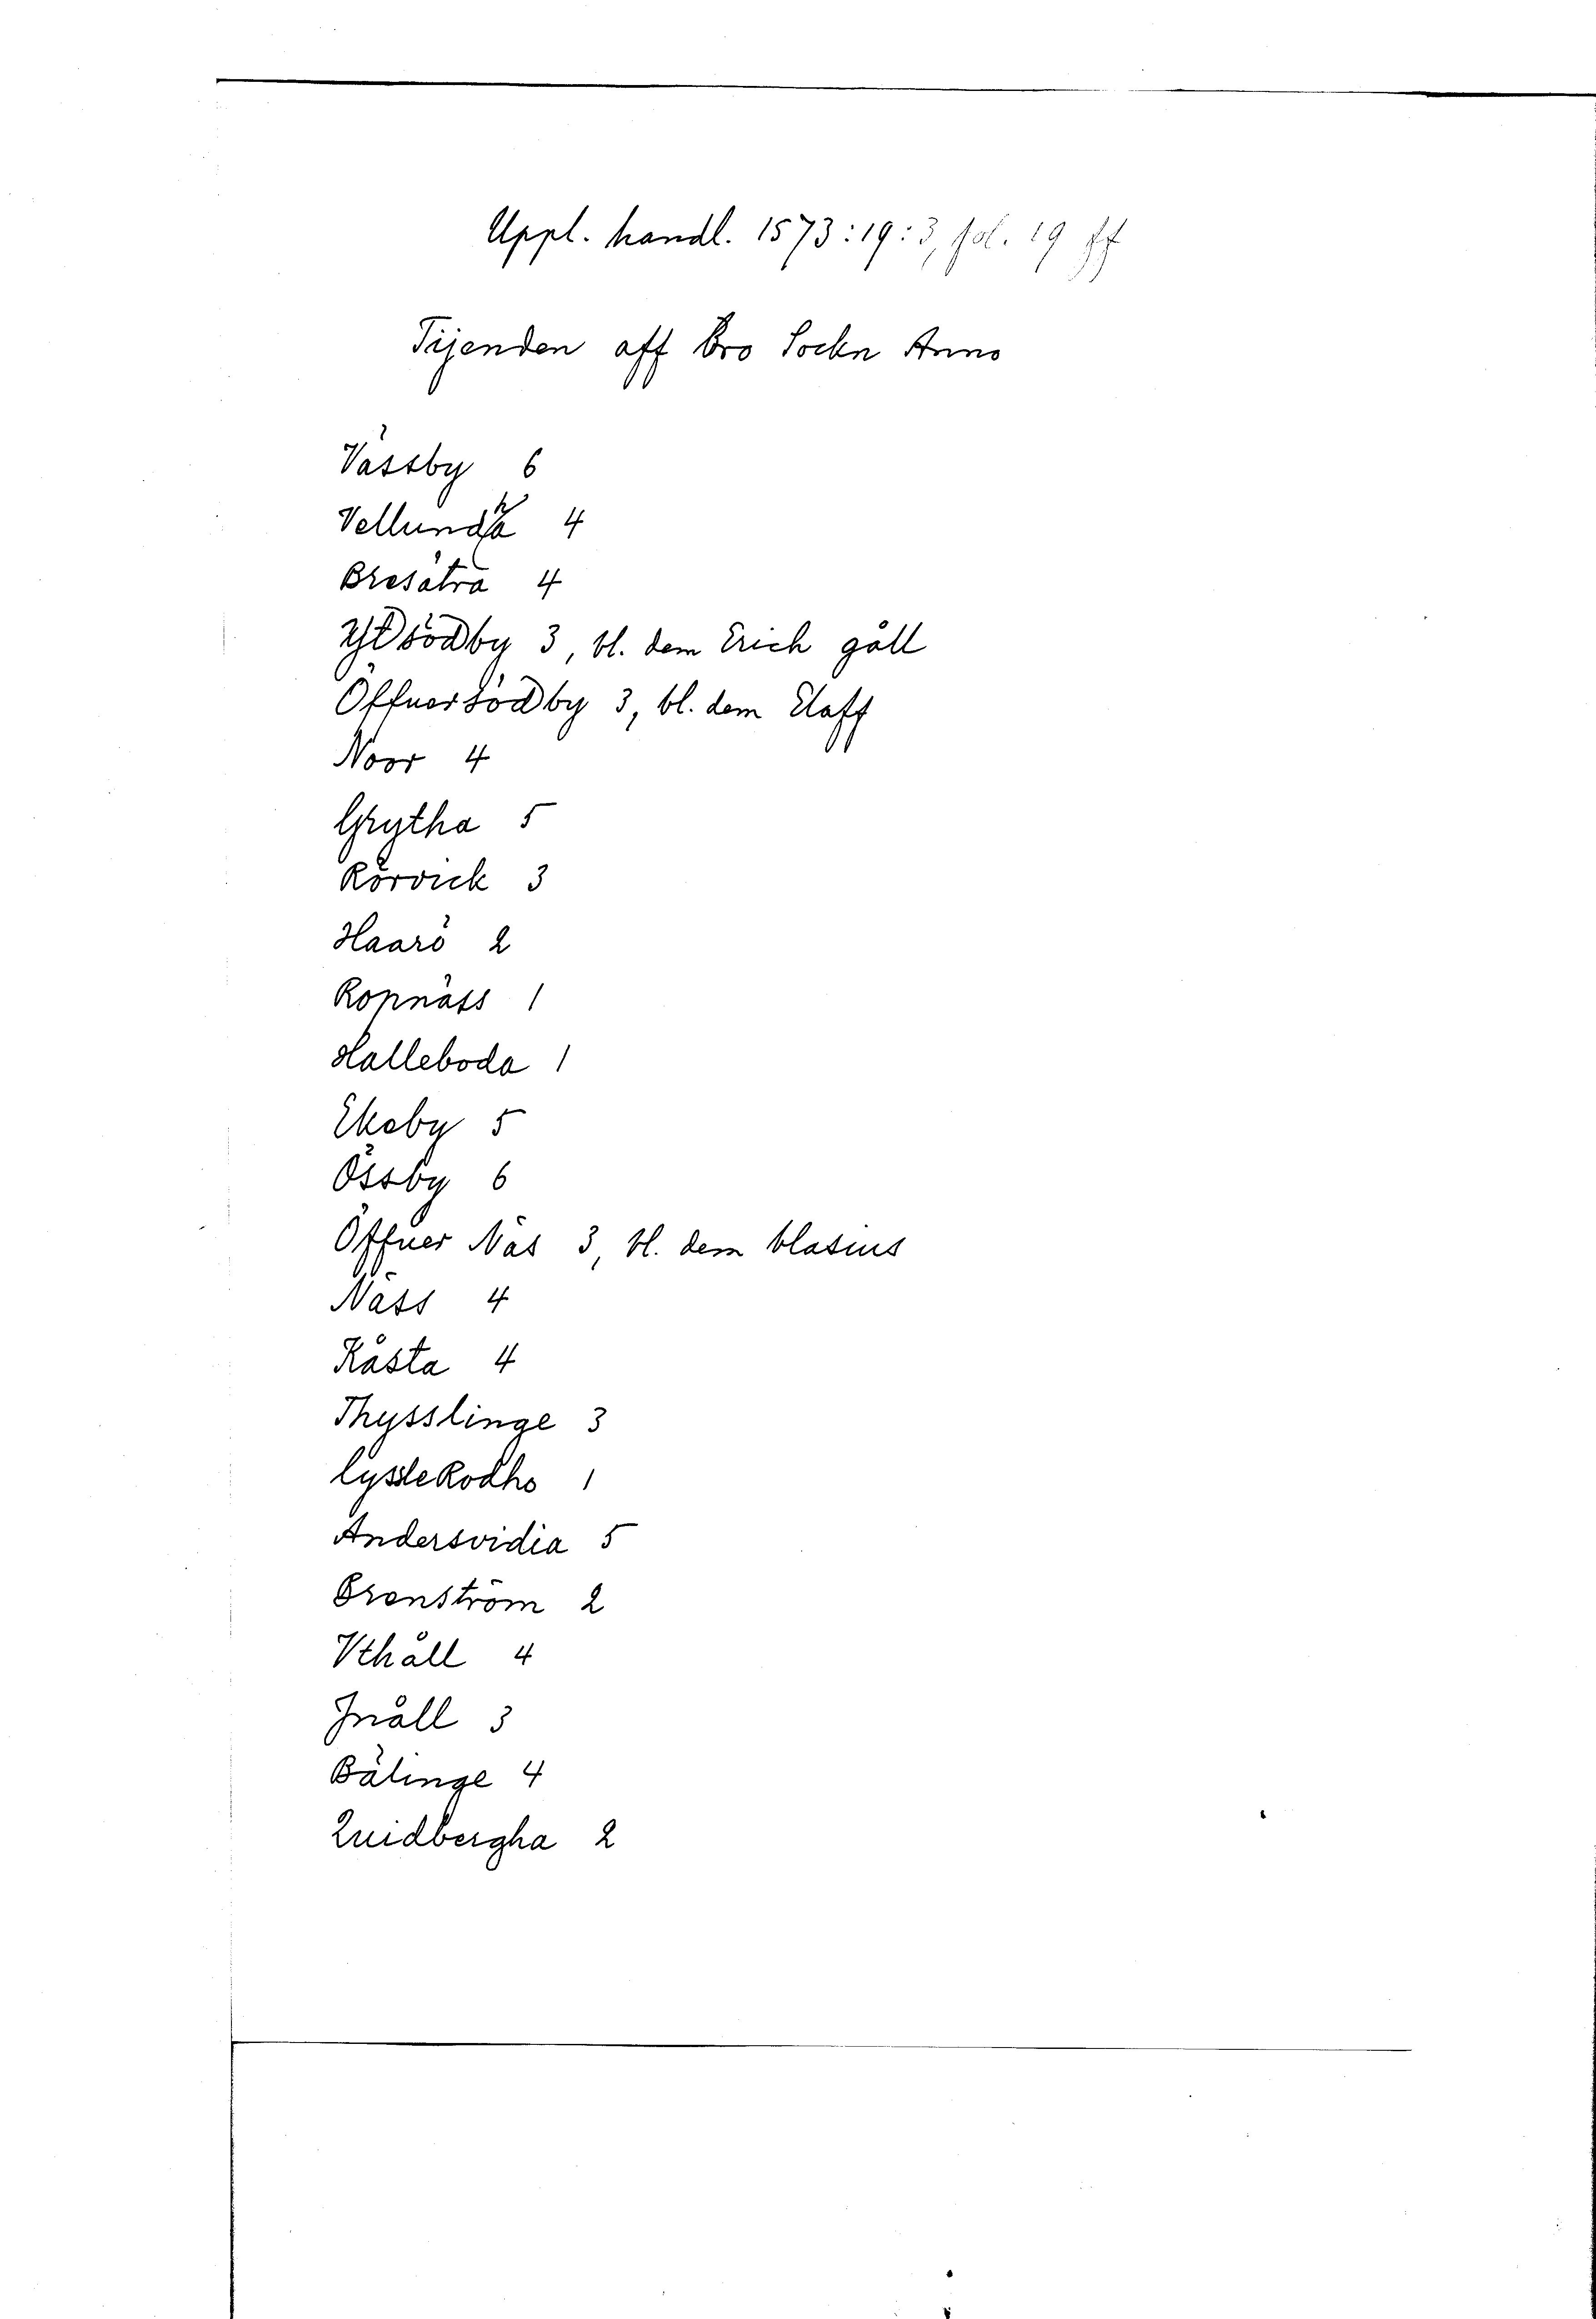 Uppl. handl. 1573:19:3, fol. 19 ff
Tijenden aff bro Sockn Anno
Vässby 6
Vellundha 4
Bresätra 4
Ytsödby 3, bl. dem Erich gåll
Öffuersödby 3, bl. dem Elaff
Noor 4
Grytha 5
Rörvick 3
Haarö 2
Ropnäss 1
Halleboda 1
Ekeby 5
Össby 6
Öffuer Näs 3, bl. dem blasius
Näss 4
Kåsta 4
Thysslinge 3
lyssleRodho 1
Andersvidia 5
Brenström 2
Vthåll 4
Jnåll 3
Bälinge 4
Quidbergha 2